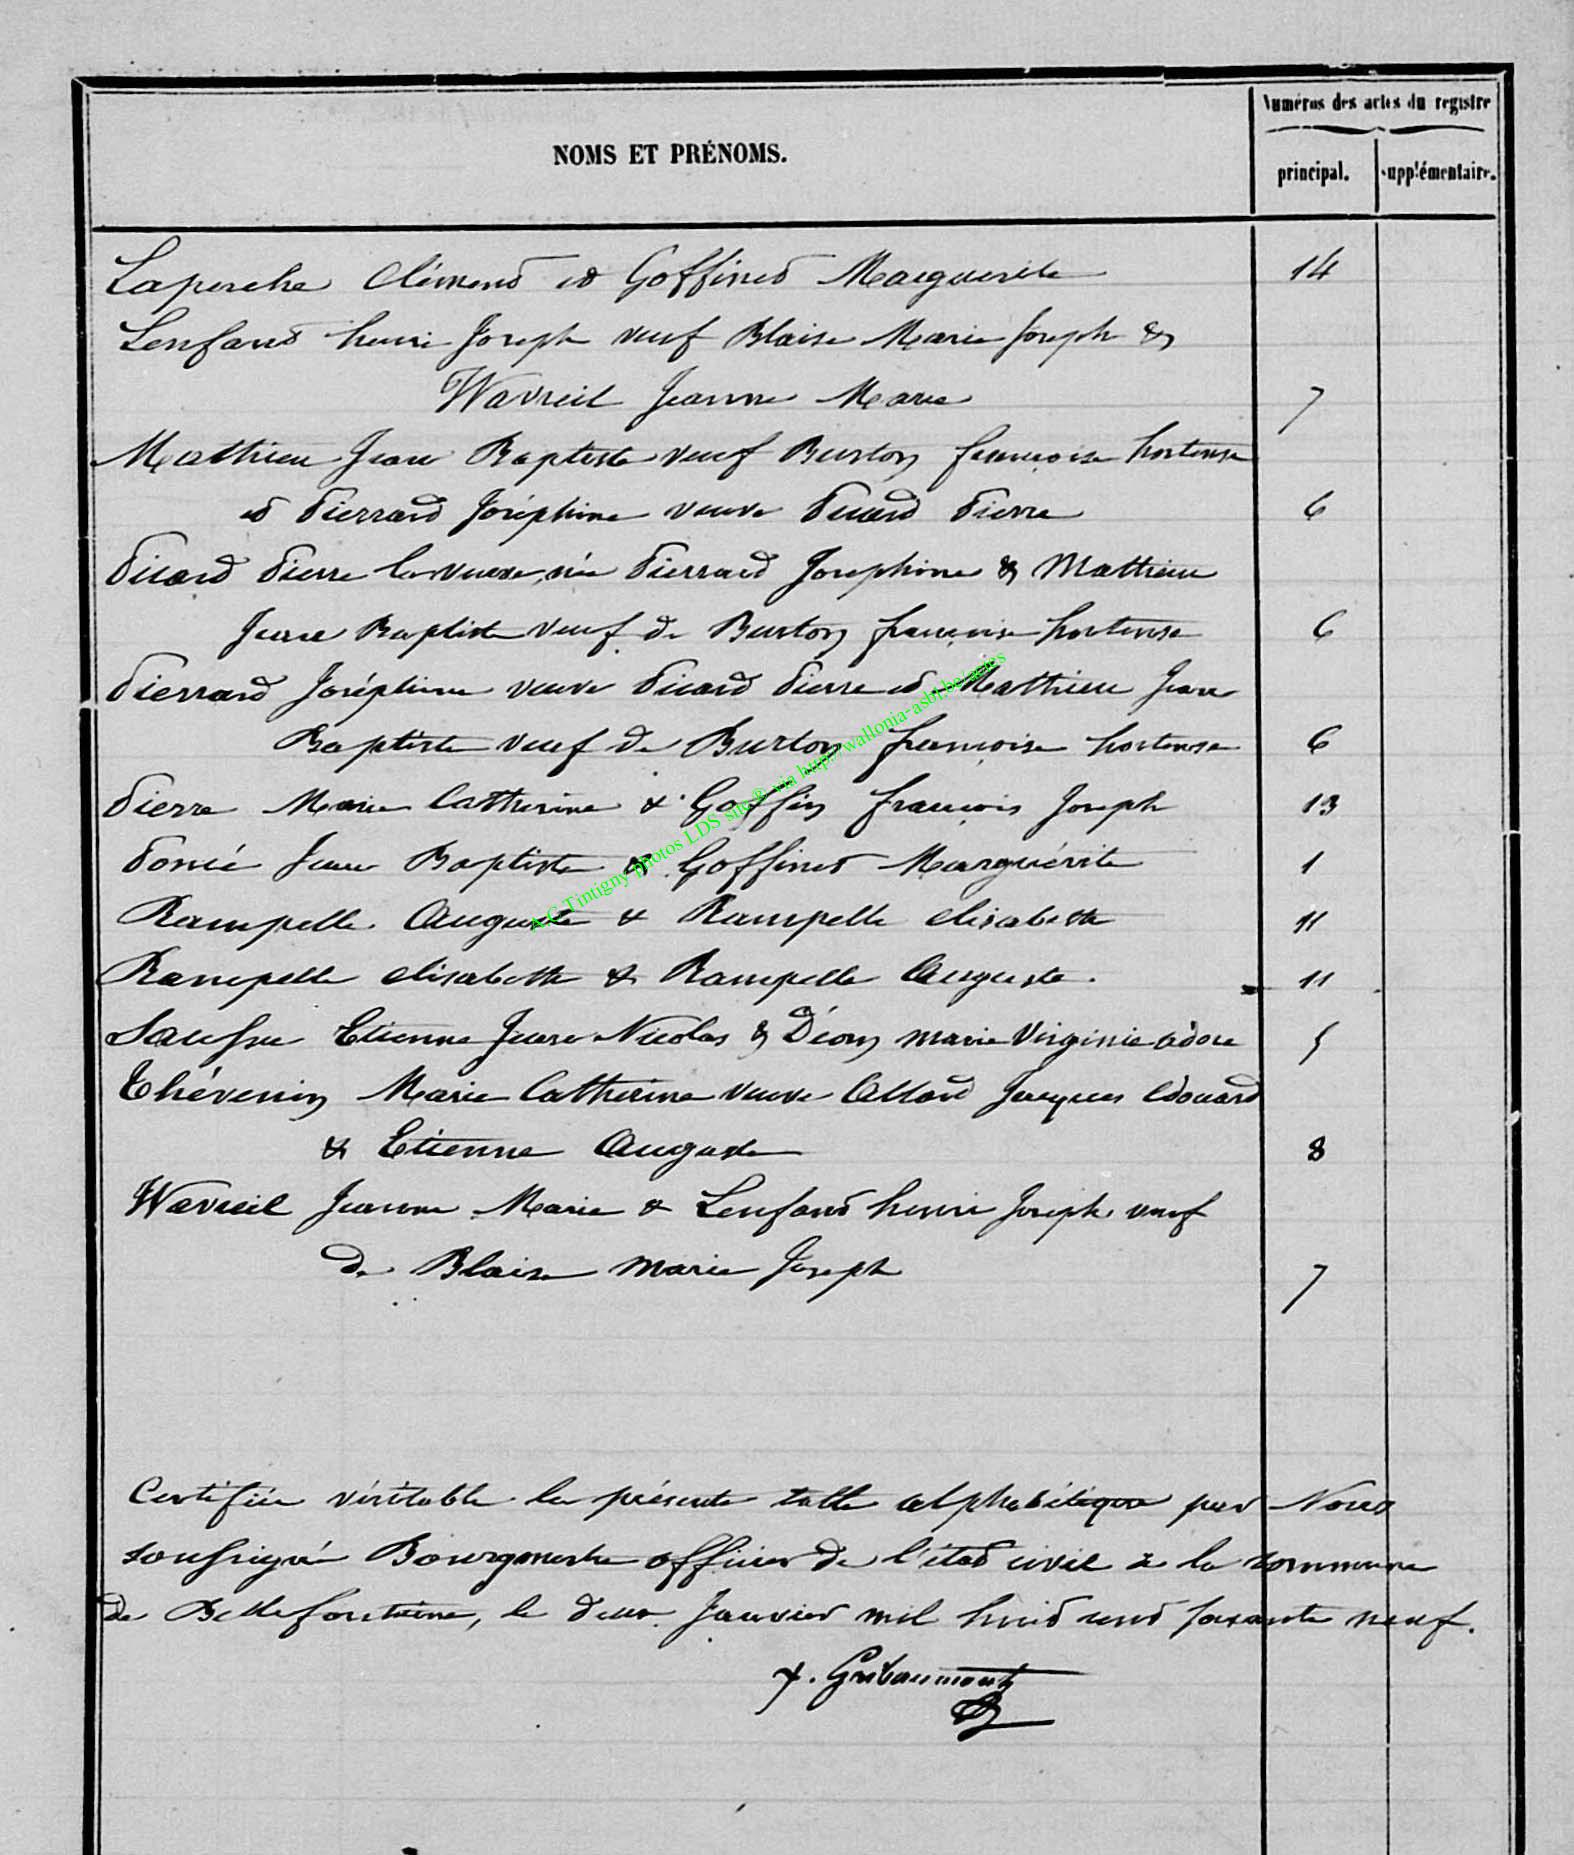 Numéros des actes du registre
NOMS ET PRÉNOMS.
principal. supplémentaire.
Laperche Clément et Goffinet Marguerite 14
Lenfant henri Joseph veuf Blaise Marie Joseph &
Wavreil Jeanne Marie 7
Mathieu Jean Baptiste veuf Burton françoise hortense
et Pierrard Joséphine veuve Picard Pierre 6
Picard Pierre la veuve, née Pierrard Josephine & Mathieu
Jean Baptiste veuf de Burton françoise hortense 6
Pierrard Joséphine veuve Picard Pierre et Mathieu Jean
Baptiste veuf de Burton françoise hortense 6
Pierre Marie Catherine & Goffin françois Joseph 13
Poncé Jean Baptiste & Goffinet Marguérite 1
Rampelle Auguste & Rampelle elisabeth 11
Rampelle elisabeth & Rampelle Auguste. 11
Etienne Jean Nicolas & Déom marie Virginie 5
Thévenin Marie Catherine veuve Allard Jacques Edouard
& Etienne Auguste 8
Wavreil Jeanne Marie & Lenfant henri Joseph veuf
de Blaise Marie Joseph 7
Certifiée véritable la présente table alphabétique par Nous
soussigné Bourgmestre officier de l'état civil de la commune
de Bellefontaine, le deux Janvier mil huit cent soixante neuf.
Gribaumont
A.G.Tintigny photos LDS site® via http://wallonia-asbl.be/actes